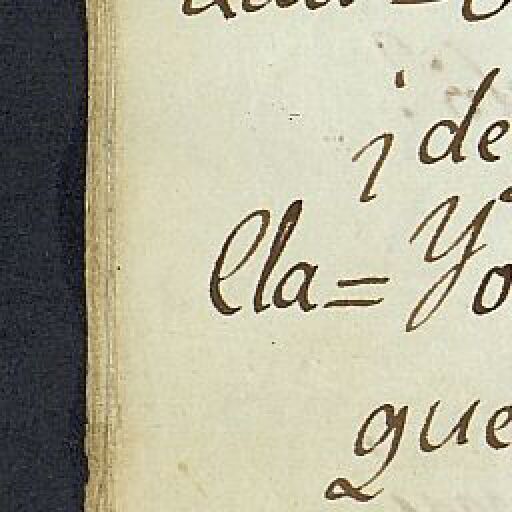 j de
lla= Yo
que